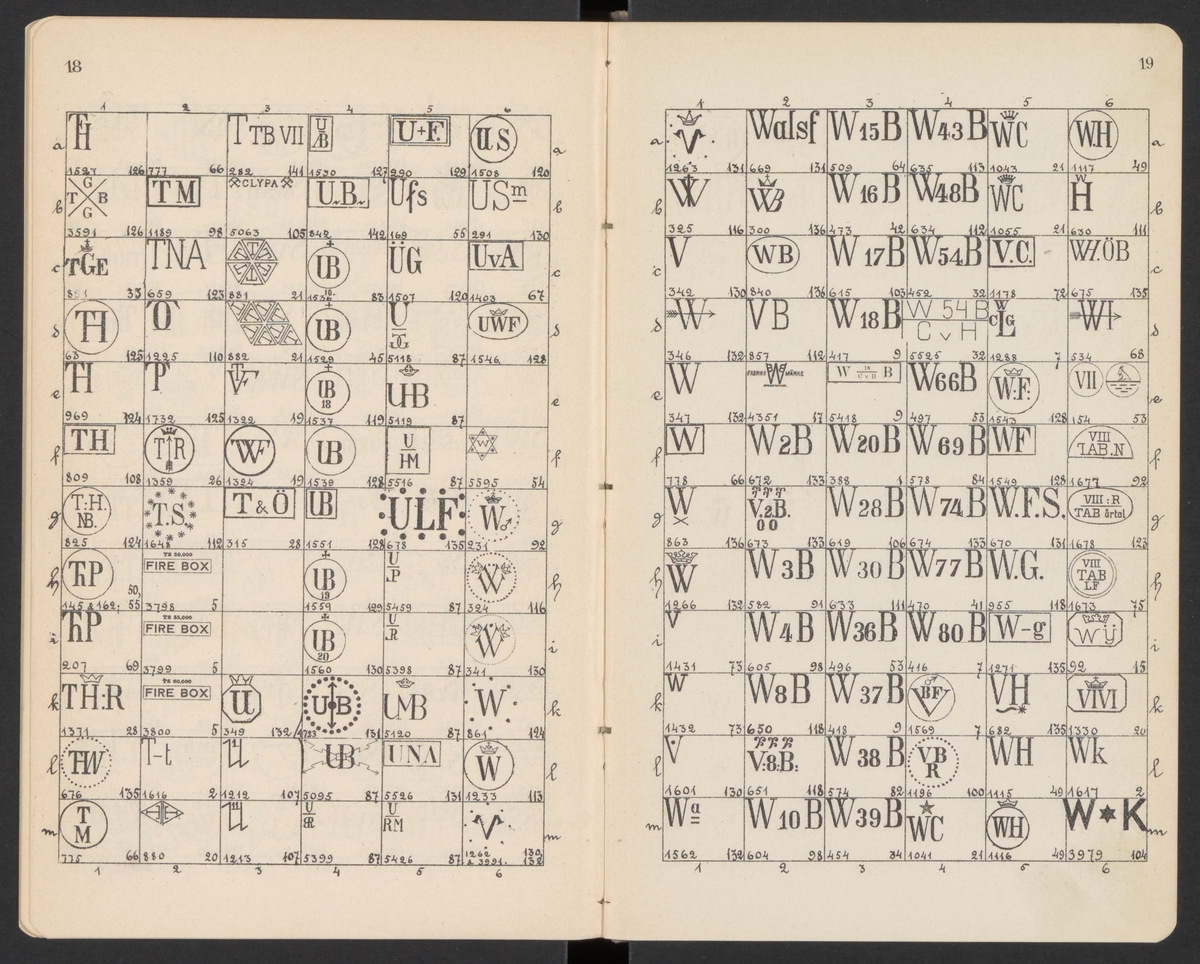 18
1 2 3 4 5 6
a TH T TB VII U/B U+F. US a
1527 126 777 66 282 141 1530 127 290 129 1508 120
b T G B G TM CLYPA U.B. Ufs USm b
3591 126 1189 98 5063 105 842 142 169 55 291 130
c TGE TNA UB ÜG UvA c
891 33 659 123 881 21 1536 10. 83 1507 120 1403 67
d TH UB U UWF d
63 125 1225 110 882 21 1529 45 5118 87 1546 128
e TH P TF UB 18 UB e
969 124 1732 125 1322 19 1537 119 5119 87
f TH T R WF UB U HM W f
809 108 1359 26 1324 19 1539 128 5516 87 5595 54
g T:H. NB. T.S. T&Ö UB ULF W g
825 124 1648 112 315 28 1551 128 678 135 231 92
h ThP TS 50,000 FIRE BOX UB 19 U P W h
145 & 162; 50, 55 3798 5 1559 129 5459 87 324 116
i ThP TS 55,000 FIRE BOX UB 20 U R W i
207 69 3799 5 1560 130 5398 87 341 130
k TH:R TS 60,000 FIRE BOX U U B UMB W k
1371 28 3800 5 349 132 1733 131 5120 87 861 124
l THW T-t UB UNA W l
676 135 1616 2 1212 107 5095 87 5526 131 1233 113
m T M U RM V m
775 66 880 20 1213 107 5399 87 5426 87 1262 & 3991. 130, 132
1 2 3 4 5 6
19
1 2 3 4 5 6
a V Walsf W15B W43B WC WH a
1263 131 669 131 509 64 635 113 1043 21 1117 49
b W WB W16B W48B WC W H b
325 116 300 136 473 42 634 112 1055 21 630 111
c V WB W17B W54B V.C. W.ÖB c
342 130 840 136 615 103 452 32 1178 72 675 135
d W VB W18B W 54 B C v H W C L G WI d
346 132 857 112 417 9 5525 32 1288 7 534 68
e W FABRIKS W MÄRKE W 18 C v H B W66B W:F: VII e
347 132 4351 17 5418 9 497 53 1543 128 154 53
f W W2B W20B W69B WF VIII TAB.N f
778 66 672 133 388 1 578 84 1549 128 1677 92
g W V.2B. 00 W28B W74B W.F.S. VIII:R TAB örtal g
863 136 673 133 619 106 674 133 670 131 1678 123
h W W3B W30B W77B W.G. VIII TAB LF h
1266 132 582 91 633 111 470 41 955 118 1673 75
i V W4B W36B W80B W-g WÜ i
1431 73 605 98 496 53 416 7 1271 135 92 15
k W W8B W37B BF VH VIVI k
1432 73 650 118 418 9 1569 7 682 135 1330 20
l V V:8:B: W38B VB R WH Wk l
1601 130 651 118 574 82 1196 100 1115 49 1617 2
m Wa W10B W39B WC WH W★K m
1562 132 604 98 454 34 1041 21 1116 49 3979 104
1 2 3 4 5 6